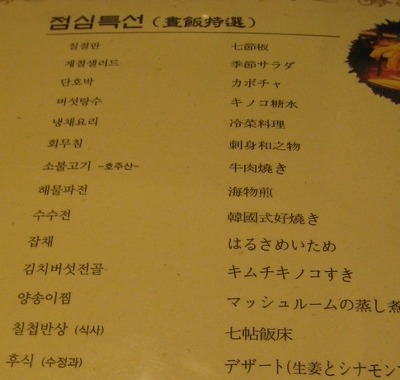 점심특선 (晝飯特選)
칠절판 七節板
계절샐러드 季節サラダ
단호박 カボチャ
버섯탕수 キノコ糖水
냉채요리 冷菜料理
회무침 刺身和之物
소불고기 -호주산- 牛肉焼き
해물파전 海物煎
수수전 韓國式好燒き
잡채 はるさめいため
김치버섯전골 キムチキノコすき
양송이찜 マッシュルームの蒸し煮
칠첩반상 (식사) 七帖飯床
후식 (수정과) デザート(生姜とシナモン